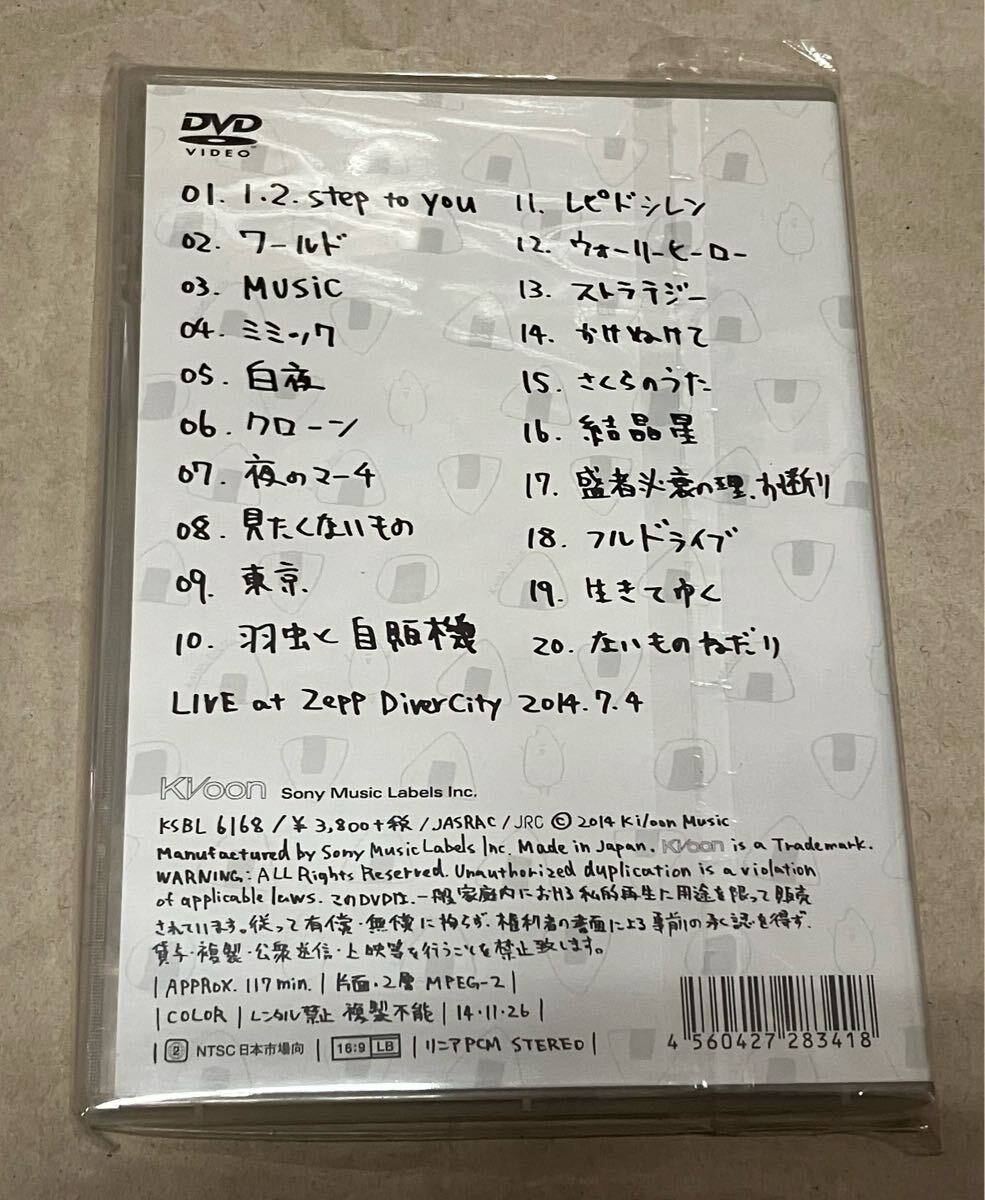 DVD
VIDEO
01. 1.2. step to you
02. ワールド
03. MUSiC
04. ミミック
05. 白夜
06. クローン
07. 夜のマーチ
08. 見たくないもの
09. 東京
10. 羽虫と自販機
11. レピドシレン
12. ウォーリーヒーロー
13. ストラテジー
14. かけぬけて
15. さくらのうた
16. 結晶星
17. 盛者必衰の理、お断り
18. フルドライブ
19. 生きてゆく
20. ないものねだり
LIVE at Zepp DiverCity 2014.7.4
Ki/oon Sony Music Labels Inc.
KSBL 6168 / ¥ 3,800+税 / JASRAC / JRC © 2014 Ki/oon Music
Manufactured by Sony Music Labels Inc. Made in Japan. Ki/oon is a Trademark.
WARNING: ALL Rights Reserved. Unauthorized duplication is a violation
of applicable laws. このDVDは、一般家庭内における私的再生に用途を限って販売
されています。従って有償・無償に拘らず、権利者の書面による事前の承認を得ず、
貸与・複製・公衆送信・上映等を行うことを禁止致します。
| APPROX. 117 min. | 片面・2層 MPEG-2 |
| COLOR | レンタル禁止 複製不能 | 14・11・26 |
| 2 NTSC 日本市場向 | 16:9 LB | リニアPCM STEREO |
4 560427 283418